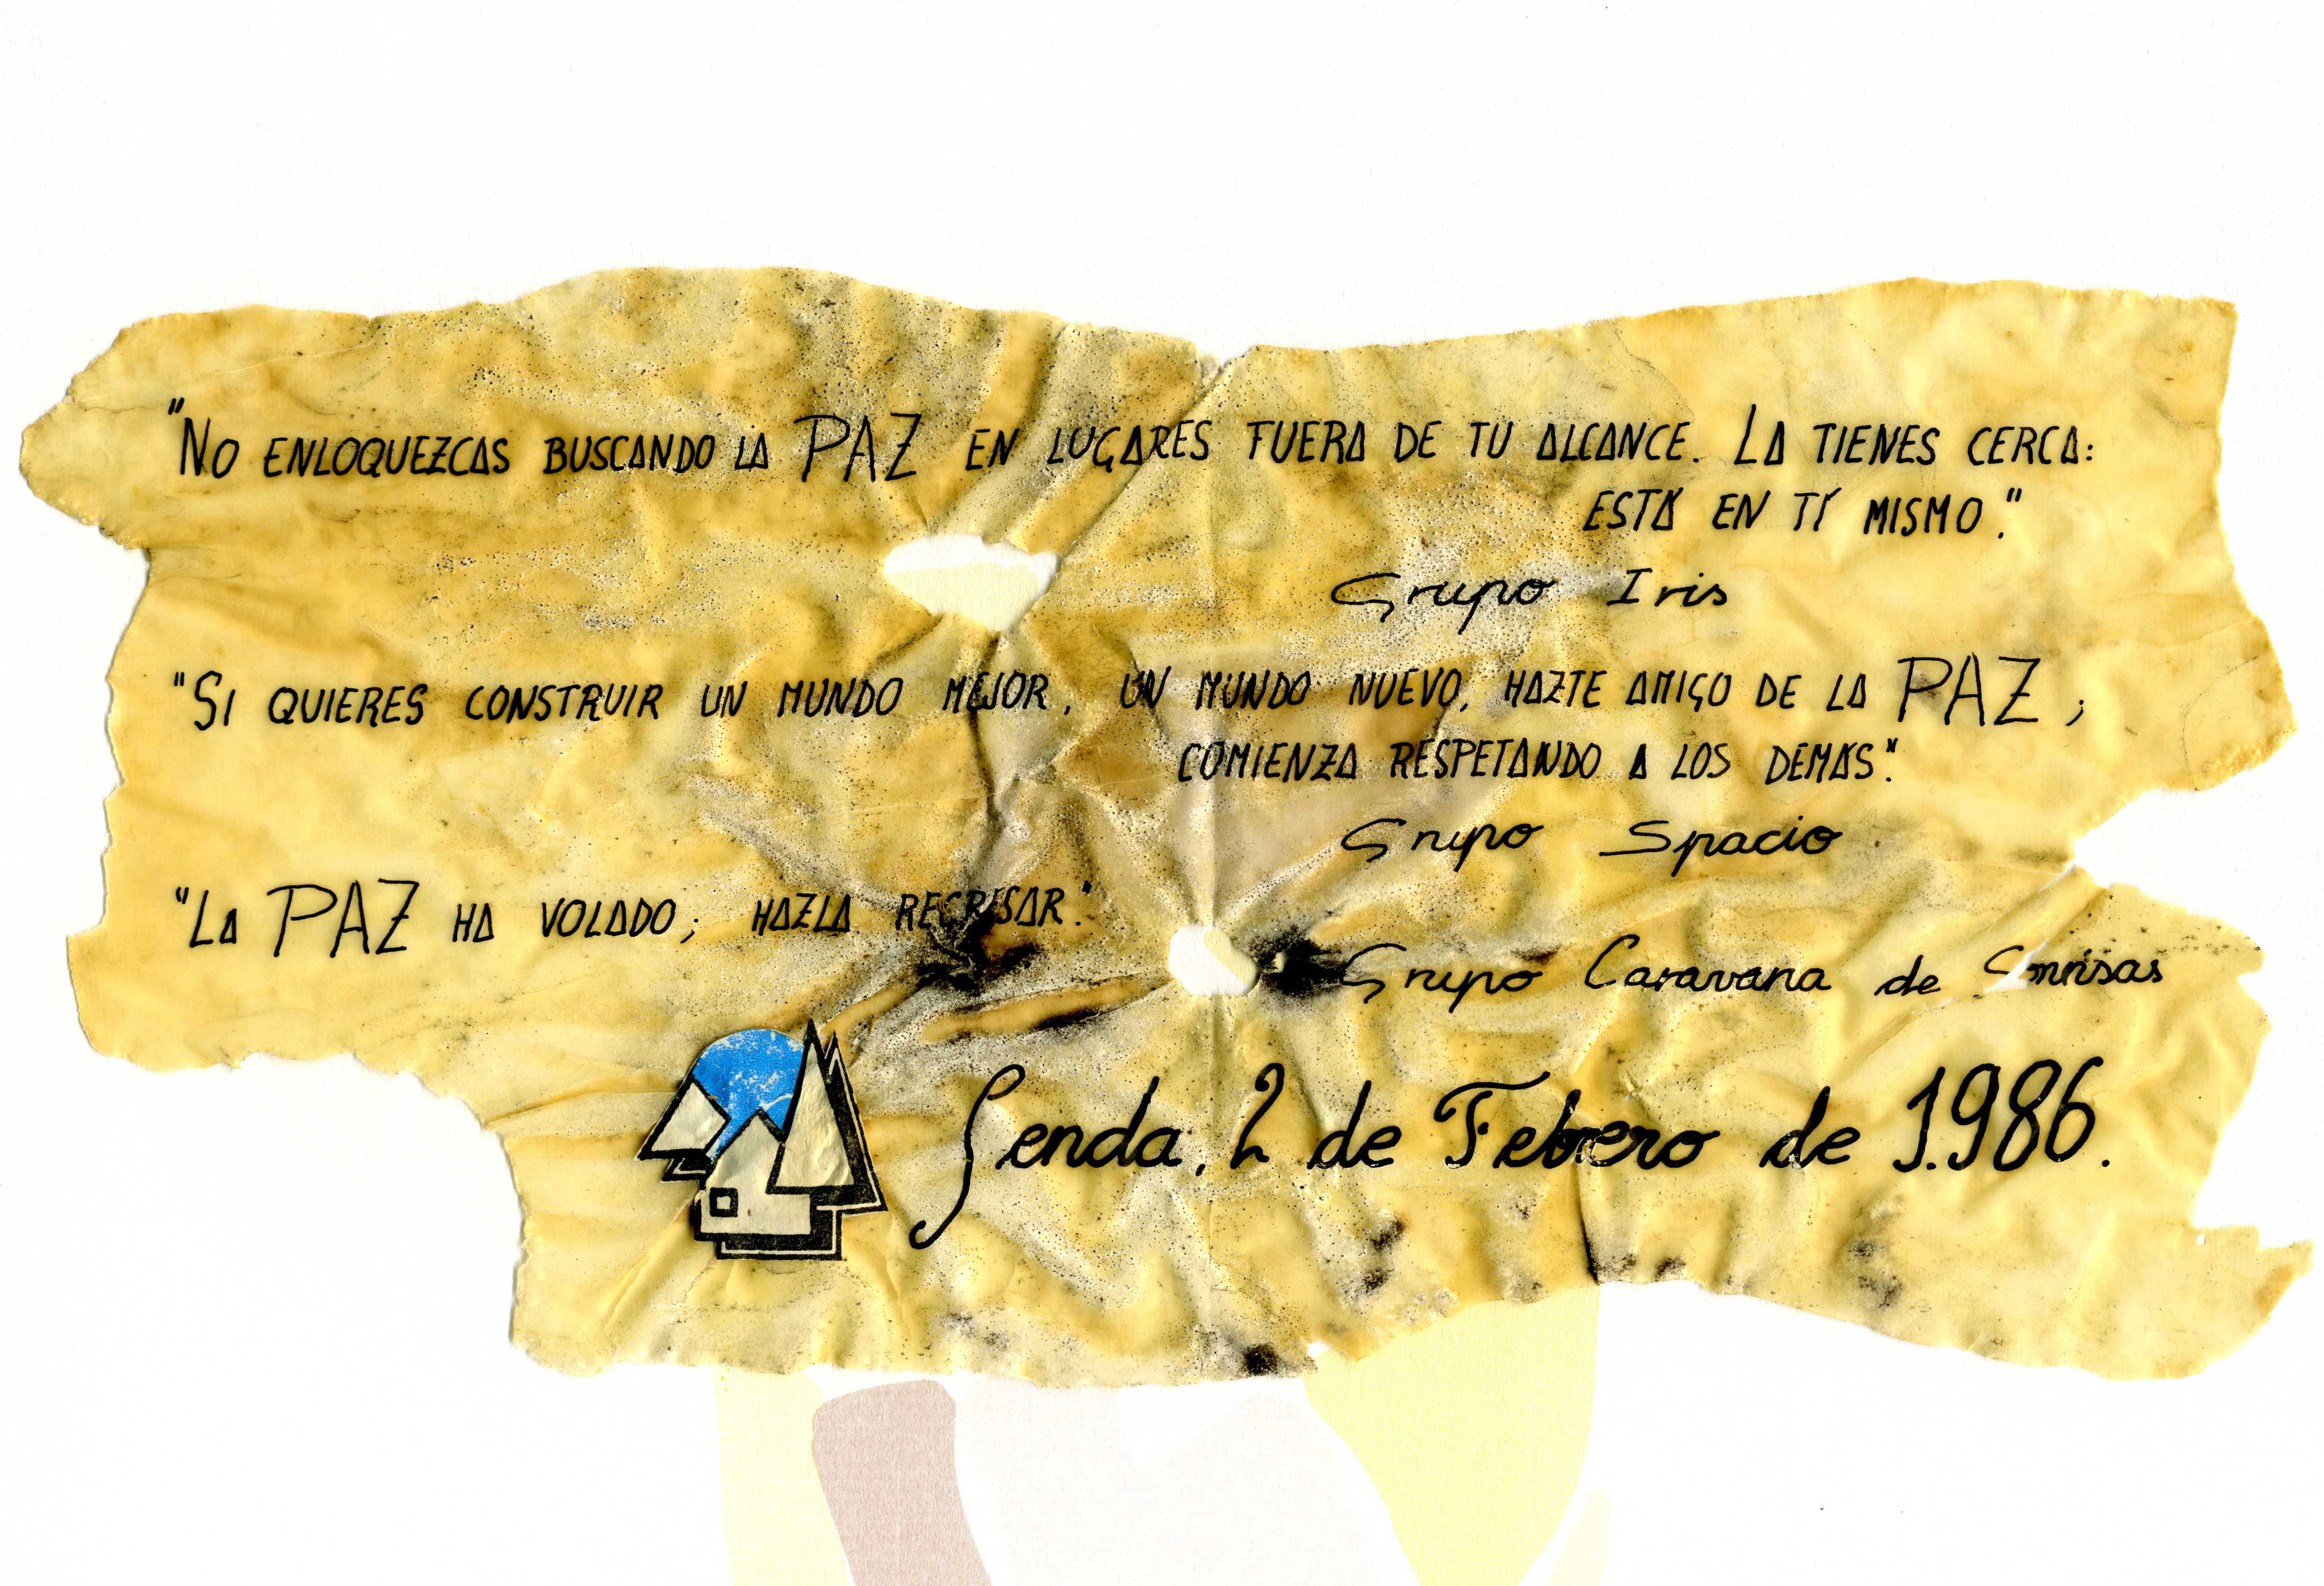 "No ENLOQUEZCAS BUSCANDO LA PAZ EN LUGARES FUERA DE TU ALCANCE. LA TIENES CERCA:
ESTÁ EN TÍ MISMO."
Grupo Iris
"SI QUIERES CONSTRUIR UN MUNDO MEJOR, UN MUNDO NUEVO, HAZTE AMIGO DE LA PAZ;
COMIENZA RESPETANDO A LOS DEMÁS".
Grupo Spacio
"LA PAZ HA VOLADO; HAZLA REGRESAR".
Grupo Caravana de Sonrisas
Senda, 2 de Febrero de 1.986.